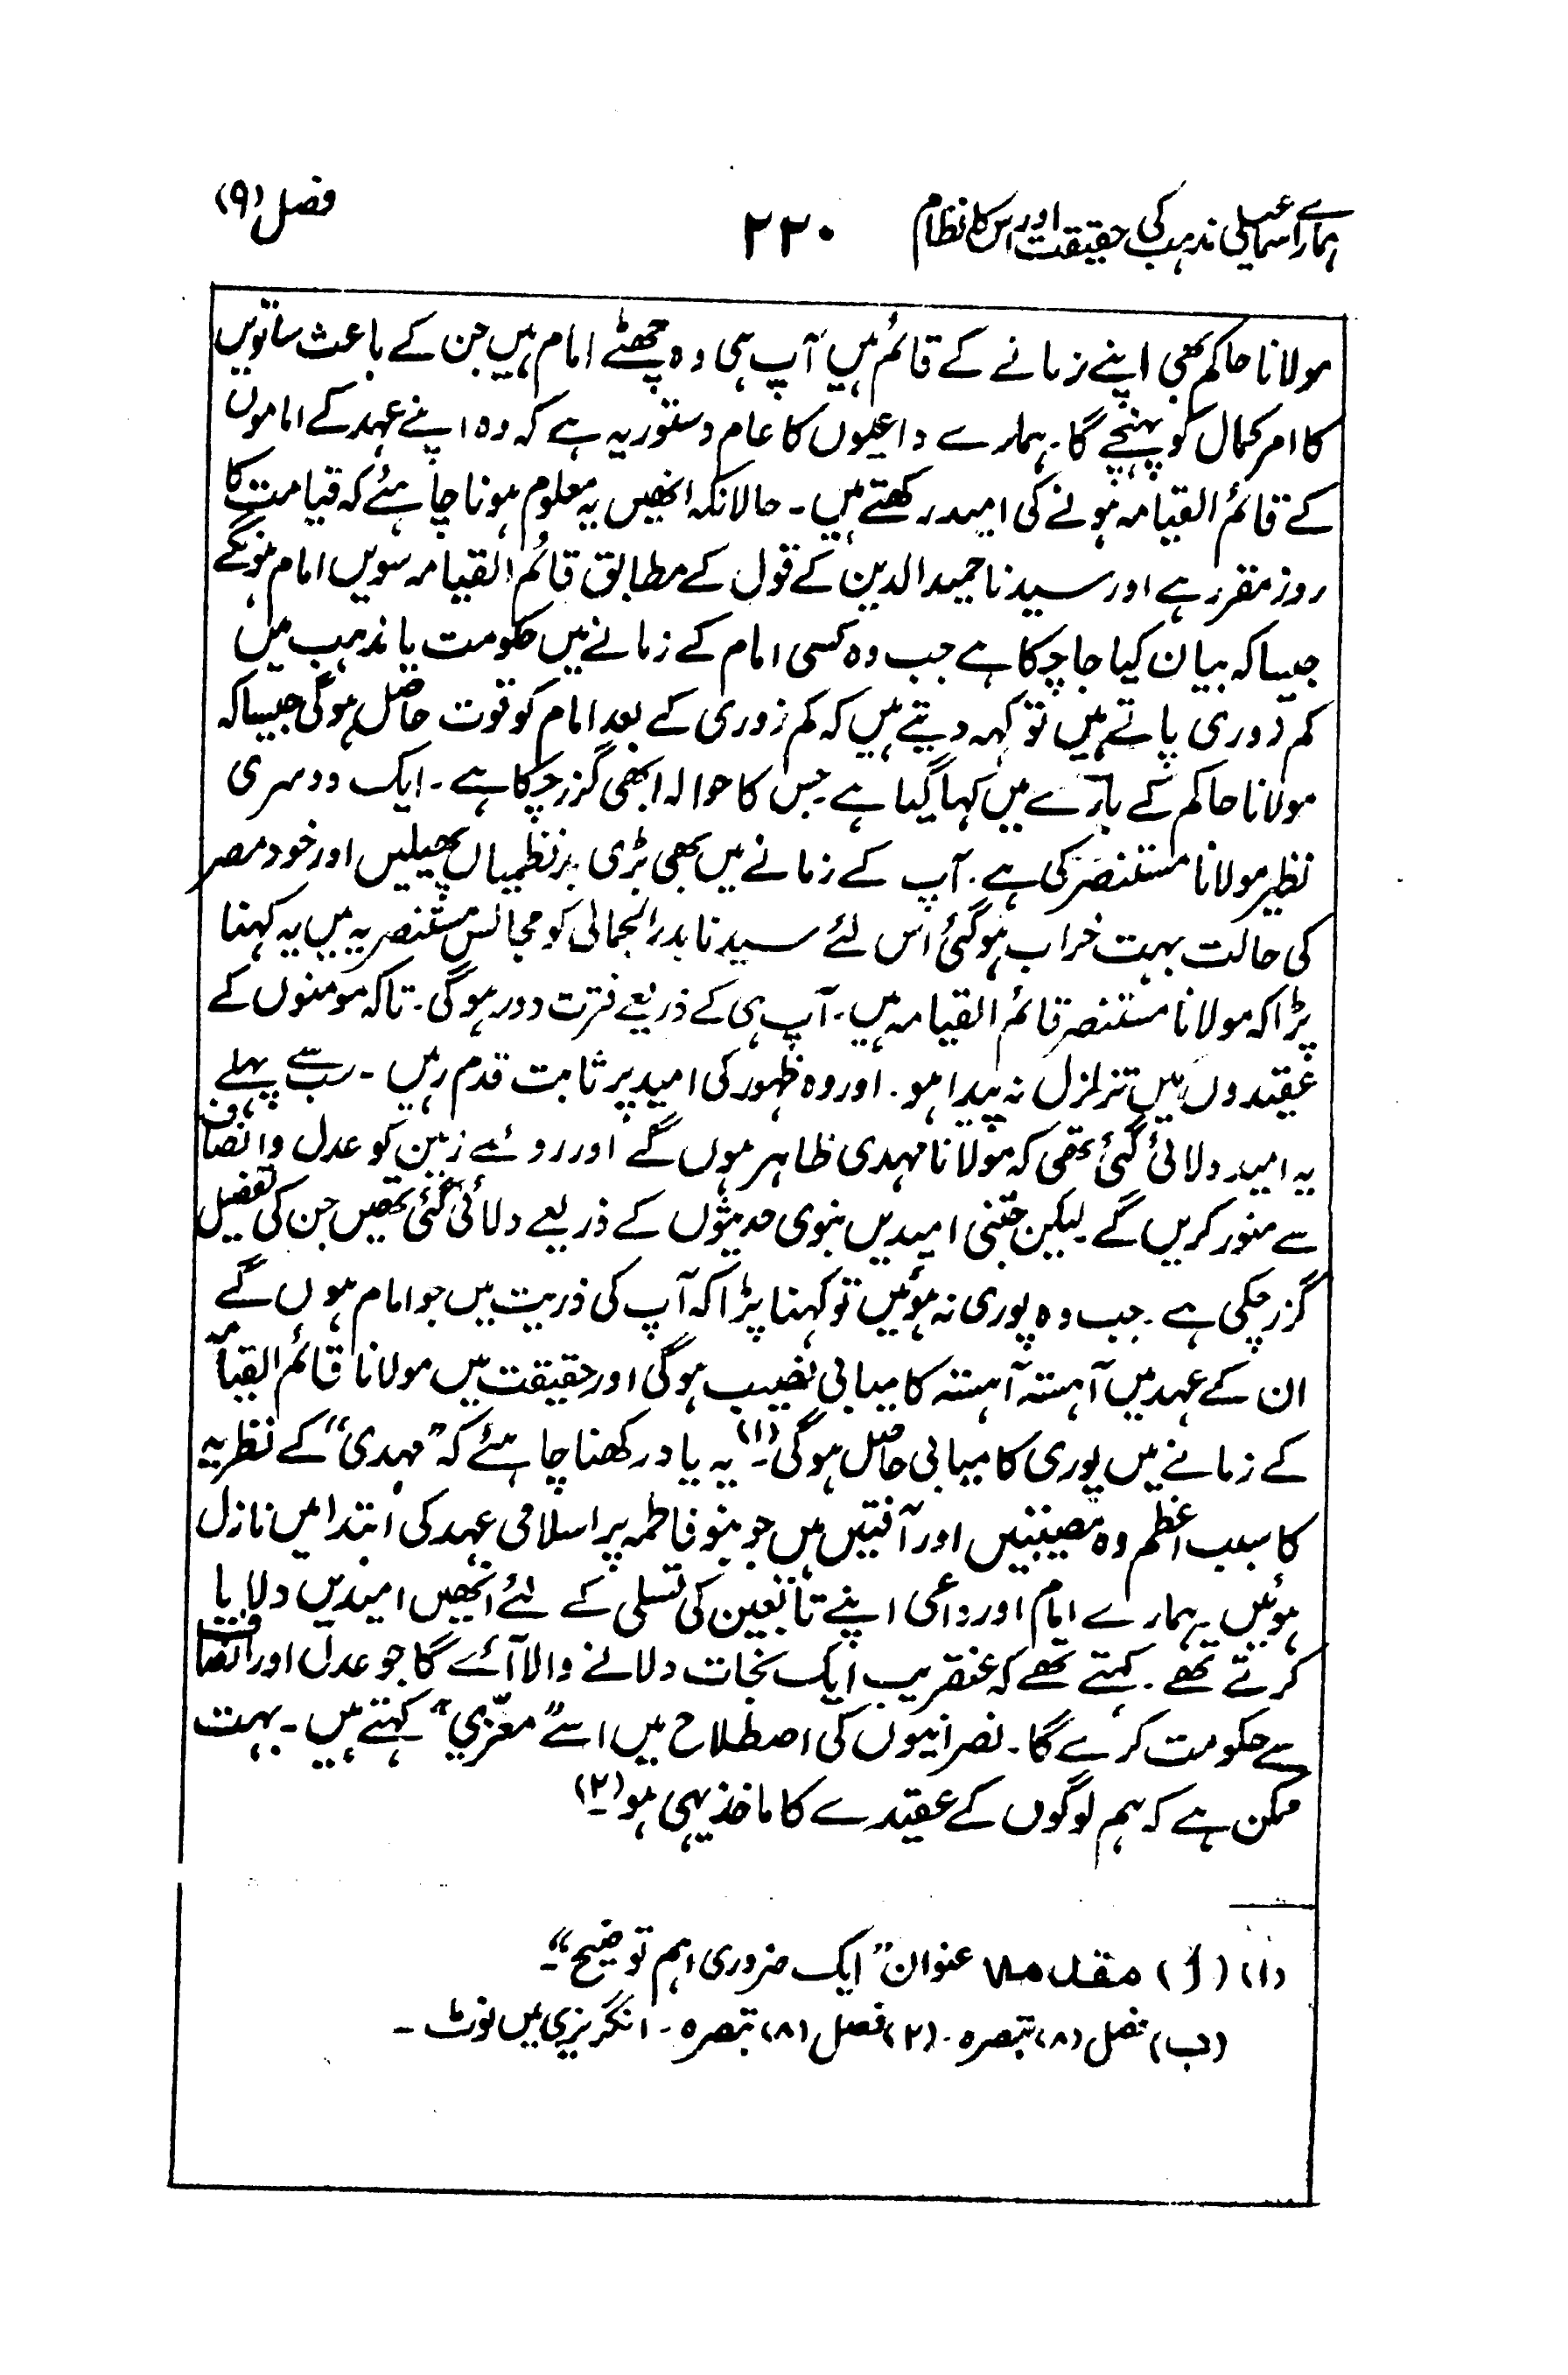 ہمارے اسماعیلی مذہب کی حقیقت اور اس کا نظام ۲۲۰ فصل (۹)
مولانا حاکم بھی اپنے زمانے کے قائم ہیں آپ ہی وہ چھٹے امام ہیں جن کے باعث ساتویں
کا امر کمال کو پہنچے گا۔ ہمارے داعیوں کا عام دستور یہ ہے کہ وہ اپنے عہد کے اماموں
کے قائم القیامہ ہونے کی امید رکھتے ہیں۔ حالانکہ انھیں یہ معلوم ہونا چاہئے کہ قیامت کا
روز مقرر ہے اور سیدنا حمید الدین کے قول کے مطابق قائم القیامہ سویں امام ہونگے
جیسا کہ بیان کیا جا چکا ہے جب وہ کسی امام کے زمانے میں حکومت یا مذہب میں
کم زوری پاتے ہیں تو کہہ دیتے ہیں کہ کم زوری کے بعد امام کو قوت حاصل ہوگی جیسا کہ
مولانا حاکم کے بارے میں کہا گیا ہے جس کا حوالہ ابھی گزر چکا ہے۔ ایک دوسری
نظیر مولانا مستنصر کی ہے۔ آپ کے زمانے میں بھی بڑی بدنظمیاں پھیلیں اور خود مصر
کی حالت بہت خراب ہوگئی اس لئے سیدنا بدر الجمالی کو مجالس مستنصریہ میں یہ کہنا
پڑا کہ مولانا مستنصر قائم القیامہ ہیں۔ آپ ہی کے ذریعے فترت دور ہوگی۔ تاکہ مومنوں کے
عقیدوں میں تزلزل نہ پیدا ہو۔ اور وہ ظہور کی امید پر ثابت قدم رہیں۔ سب سے پہلے
یہ امید دلائی گئی تھی کہ مولانا مہدی ظاہر ہوں گے اور روئے زمین کو عدل وانصاف
سے منور کریں گے۔ لیکن جتنی امیدیں نبوی حدیثوں کے ذریعے دلائی گئی تھیں جن کی تفصیل
گزر چکی ہے۔ جب وہ پوری نہ ہوئیں تو کہنا پڑا کہ آپ کی ذریت میں جو امام ہوں گے
ان کے عہد میں آہستہ آہستہ کامیابی نصیب ہوگی اور حقیقت میں مولانا قائم القیامہ
کے زمانے میں پوری کامیابی حاصل ہوگی۔(۱) یہ یاد رکھنا چاہئے کہ ”مہدی“ کے نظریہ
کا سبب اعظم وہ مصیبتیں اور آفتیں ہیں جو بنو فاطمہ پر اسلامی عہد کی ابتدا میں نازل
ہوئیں۔ ہمارے امام اور داعی اپنے تابعین کی تسلی کے لئے انھیں امیدیں دلایا
کرتے تھے۔ کہتے تھے کہ عنقریب ایک نجات دلانے والا آئے گا جو عدل اور انصاف
سے حکومت کرے گا۔ نصرانیوں کی اصطلاح میں اسے ”معزّی“ کہتے ہیں۔ بہت
ممکن ہے کہ ہم لوگوں کے عقیدے کا ماخذ یہی ہو۔(۲)
(۱) (أ) مقدمہ عنوان ”ایک ضروری اہم توضیح“۔
(ب) فصل (۸) تبصرہ۔ (۲) فصل (۸) تبصرہ۔ انگریزی میں نوٹ۔